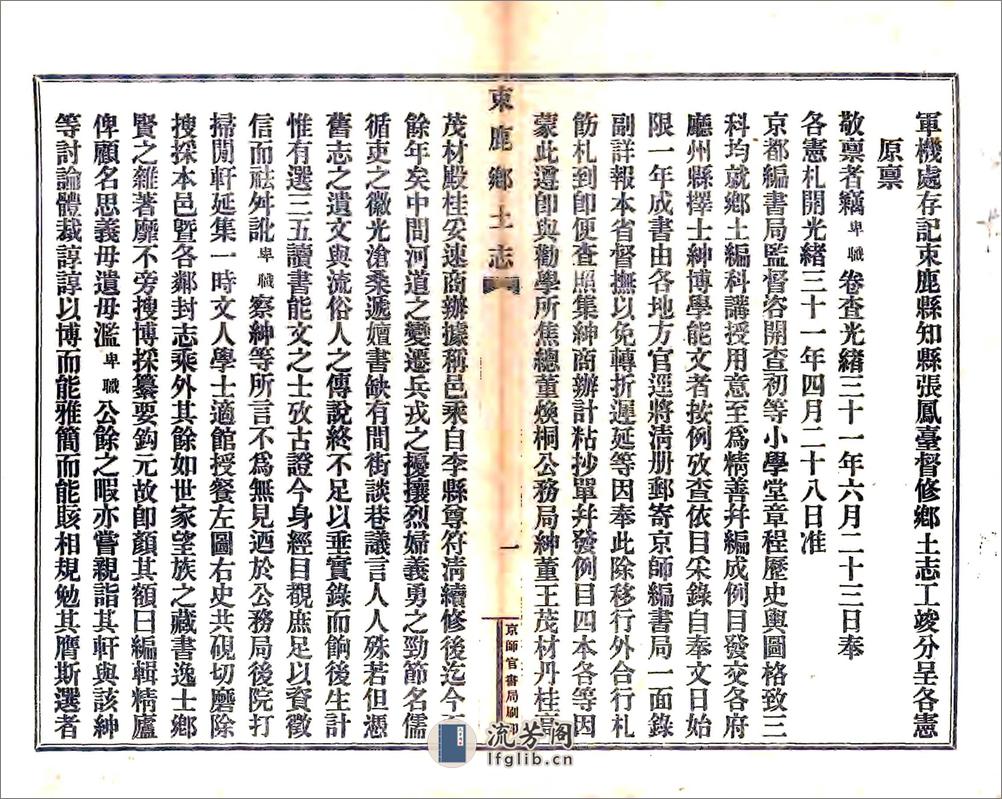 軍機處存記束鹿縣知縣張鳳臺督修鄉土志工竣分呈各憲
原禀
敬禀者竊卑職卷查光緒三十一年六月二十三日奉
各憲札開光緒三十一年四月二十八日准
京都編書局監督咨開查初等小學堂章程歷史輿圖格致三
科均就鄉土編科講授用意至爲精善幷編成例目發交各府
廳州縣擇士紳博學能文者按例攷查依目采錄自奉文日始
限一年成書由各地方官逕將淸册郵寄京師編書局一面錄
副詳報本省督撫以免轉折遲延等因奉此除移行外合行札
飭札到卽便查照集紳商辦計粘抄單幷發例目四本各等因
蒙此遵卽與勸學所焦總董煥桐公務局紳董王茂材丹桂高
束鹿鄉土志
一
京師官書局刷印
茂材殿桂妥速商辦據稱邑乘自李縣尊符淸續修後迄今百
餘年矣中間河道之變遷兵戎之擾攘烈婦義勇之勁節名儒
循吏之徽光滄桑遞嬗書缺有間街談巷議言人人殊若但憑
舊志之遺文與流俗人之傳說終不足以垂實錄而餉後生計
惟有選三五讀書能文之士攷古證今身經目覩庶足以資徵
信而祛舛訛卑職察紳等所言不爲無見迺於公務局後院打
掃閒軒延集一時文人學士適館授餐左圖右史共硯切磨除
搜採本邑曁各鄰封志乘外其餘如世家望族之藏書逸士鄉
賢之雜著靡不旁搜博採纂要鈎元故卽顏其額曰編輯精廬
俾顧名思義毋遺毋濫卑職公餘之暇亦嘗親詣其軒與該紳
等討論體裁諄諄以博而能雅簡而能賅相規勉其膺斯選者
流芳閣
lfglib.cn